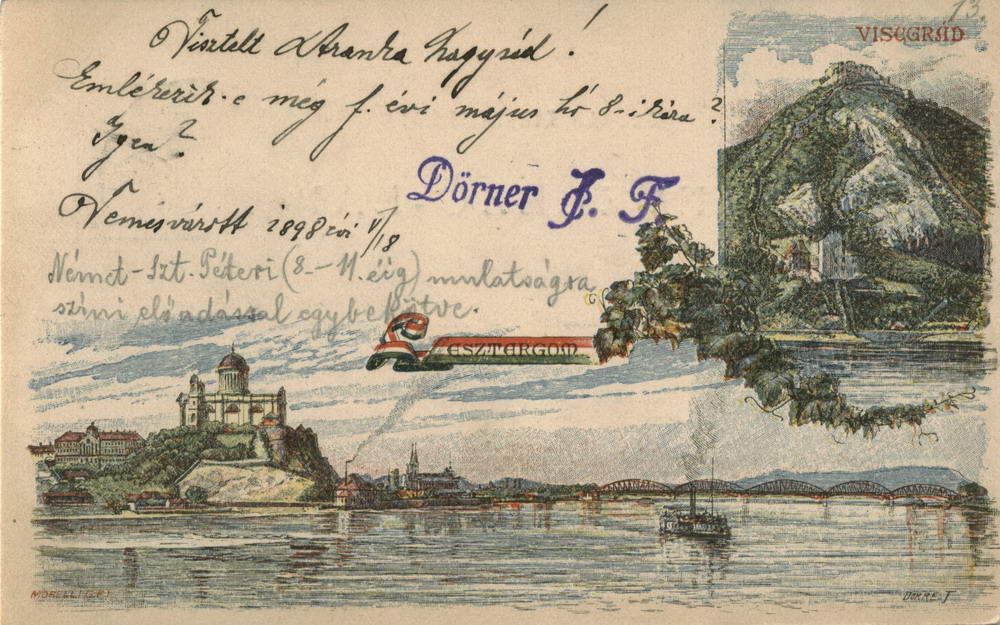 13.
VISEGRÁD
Tisztelt Aranka Nagysád!
Emlékezik-e még f. évi május hó 8-ikára?
Igen?
Dörner J. F.
Nemesvárott 1898 évi V/18
Német-Szt. Péteri (8.-11.éig) mulatságra
színi előadással egybekötve.
ESZTERGOM
MORELLI G. F.
DÖRRE T